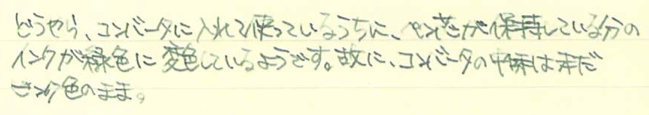 どうやら、コンバータに入れて使っているうちに、ペン芯が保持している分の
インクが緑色に変色しているようです。故に、コンバータの中味はまだ
ピンク色のまま。